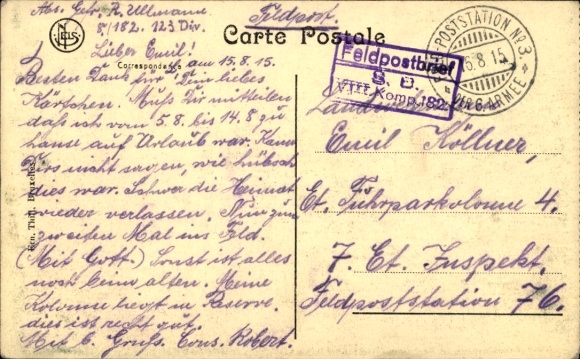 Abs. Gefr. R. Ullmann
8/182. 123 Div.
Feldpost.
NELS
Carte Postale
Correspondance
Lieber Emil!
am 15.8.15.
Besten Dank für Dein liebes
Kärtchen. Muß Dir mitteilen
daß ich vom 5.8. bis 14.8 zu
hause auf Urlaub war. Kann
Dirs nicht sagen, wie hübsch
dies war. die Heimat
wieder verlassen. Nun zum
zweiten Mal ins Feld.
(Mit Gott.) Sonst ist alles
noch beim alten. Meine
Kolonne liegt in Reserve.
dies ist recht gut.
Mit b. Gruß. Cous. Robert.
Ern. Thill, Bruxelles
Feldpostbrief
S. B.
VIII. Komp. 182
POSTSTATION No 3.
8 15
DER 6. ARMEE
Emil Köllner,
Et. Fuhrparkolonne 4.
7. Et. Inspekt.
Feldpoststation 76.